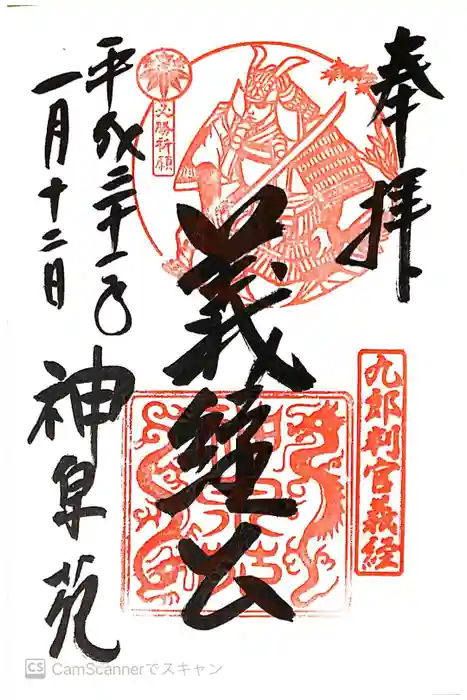 奉拝
九郎判官義経
義経公
必勝祈願
平成三十一年
一月十二日
神泉苑
CS CamScannerでスキャン